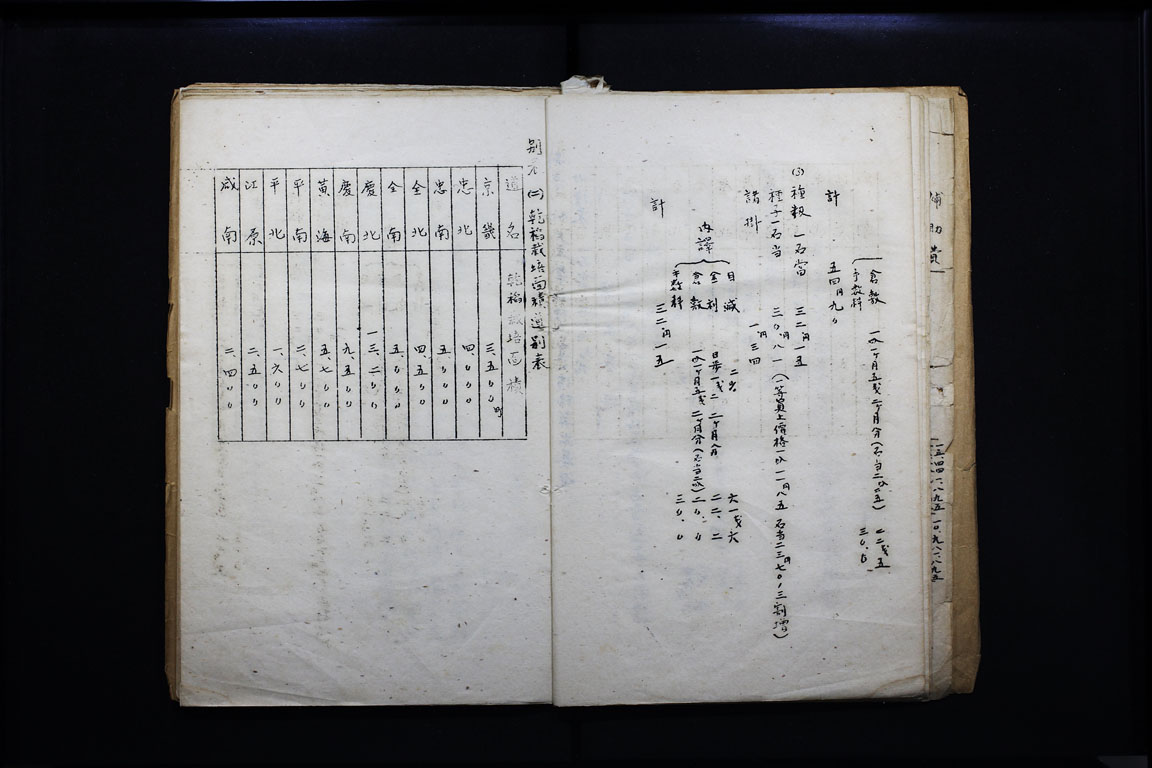 補助費
倉敷 一叺一ヶ月五戋 二ヶ月分(石当二叺二五) 二二戋五
手数料 三〇.〇
計 五四円九〇
(3) 種籾一石當 三二円一五
種子一石当 三〇円.八一(一等買上價格一叺一一円八五 石当二三円七〇,三割増)
諸掛 一円三四
内譯
目減 二% 六一戋六
金利 日歩一戋二 二ヶ月分 二二.二
倉敷 一叺一ヶ月五戋 二ヶ月分(石当二叺) 二〇.〇
手数料 三〇.〇
計 三二円一五
別表(二) 乾稻栽培面積道別表
道名 乾稻栽培面積
京畿 三、五〇〇町
忠北 四、〇〇〇
忠南 五、〇〇〇
全北 四、五〇〇
全南 五、〇〇〇
慶北 一三、二〇〇
慶南 九、五〇〇
黃海 五、七〇〇
平南 二、七〇〇
平北 一、六〇〇
江原 二、五〇〇
咸南 二、四〇〇